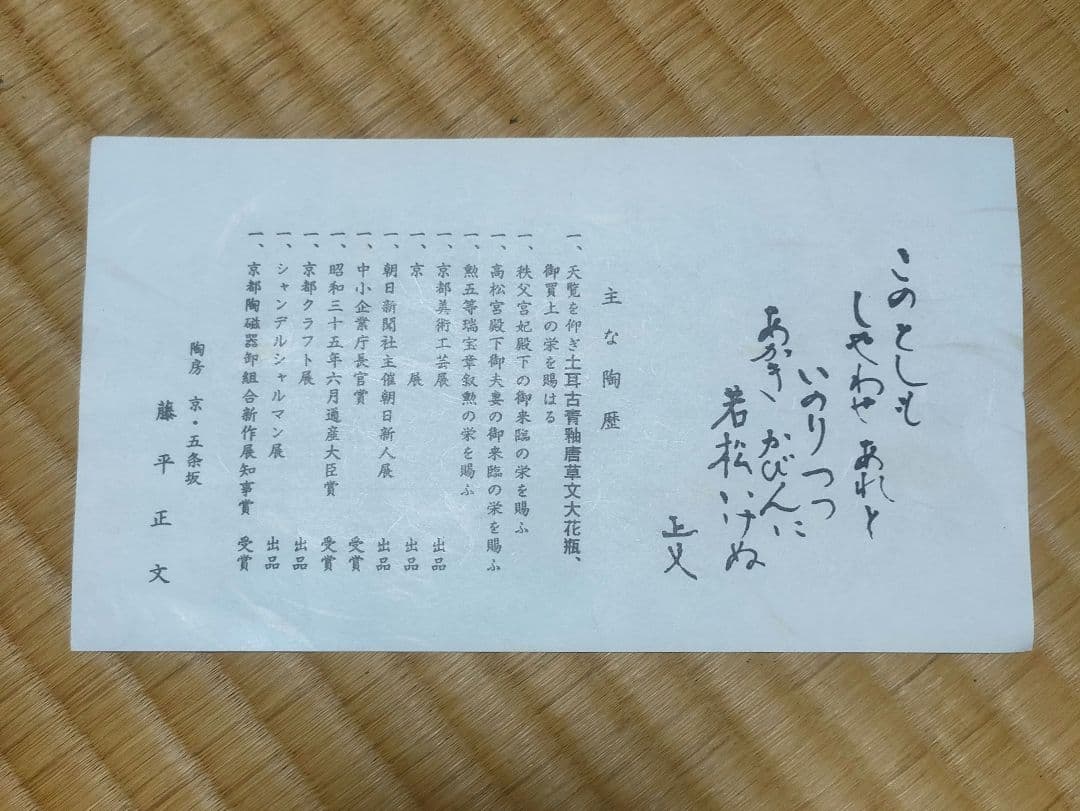 このとしも
しやわせあれと
いのりつつ
あかき かびんに
若松いけぬ
正文
主な陶歴
一、天覧を仰ぎ土耳古青釉唐草文大花瓶、
御買上の栄を賜はる
一、秩父宮妃殿下の御来臨の栄を賜ふ
一、高松宮殿下御夫妻の御来臨の栄を賜ふ
一、勲五等瑞宝章叙勲の栄を賜ふ
一、京都美術工芸展 出品
一、京展 出品
一、朝日新聞社主催朝日新人展 出品
一、中小企業庁長官賞 受賞
一、昭和三十五年六月通産大臣賞 受賞
一、京都クラフト展 出品
一、シャンデルシャルマン展 出品
一、京都陶磁器卸組合新作展知事賞 受賞
陶房 京・五条坂
藤平正文